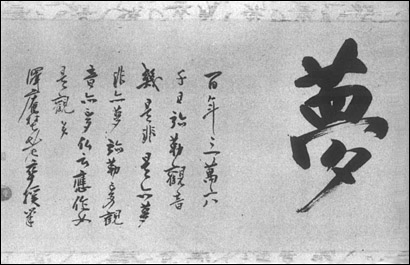 夢
百年三萬六
千日弥勒觀音
幾是非是亦夢
非亦夢弥勒夢觀
音亦夢仏云應作如
是觀矣
澤庵 筆